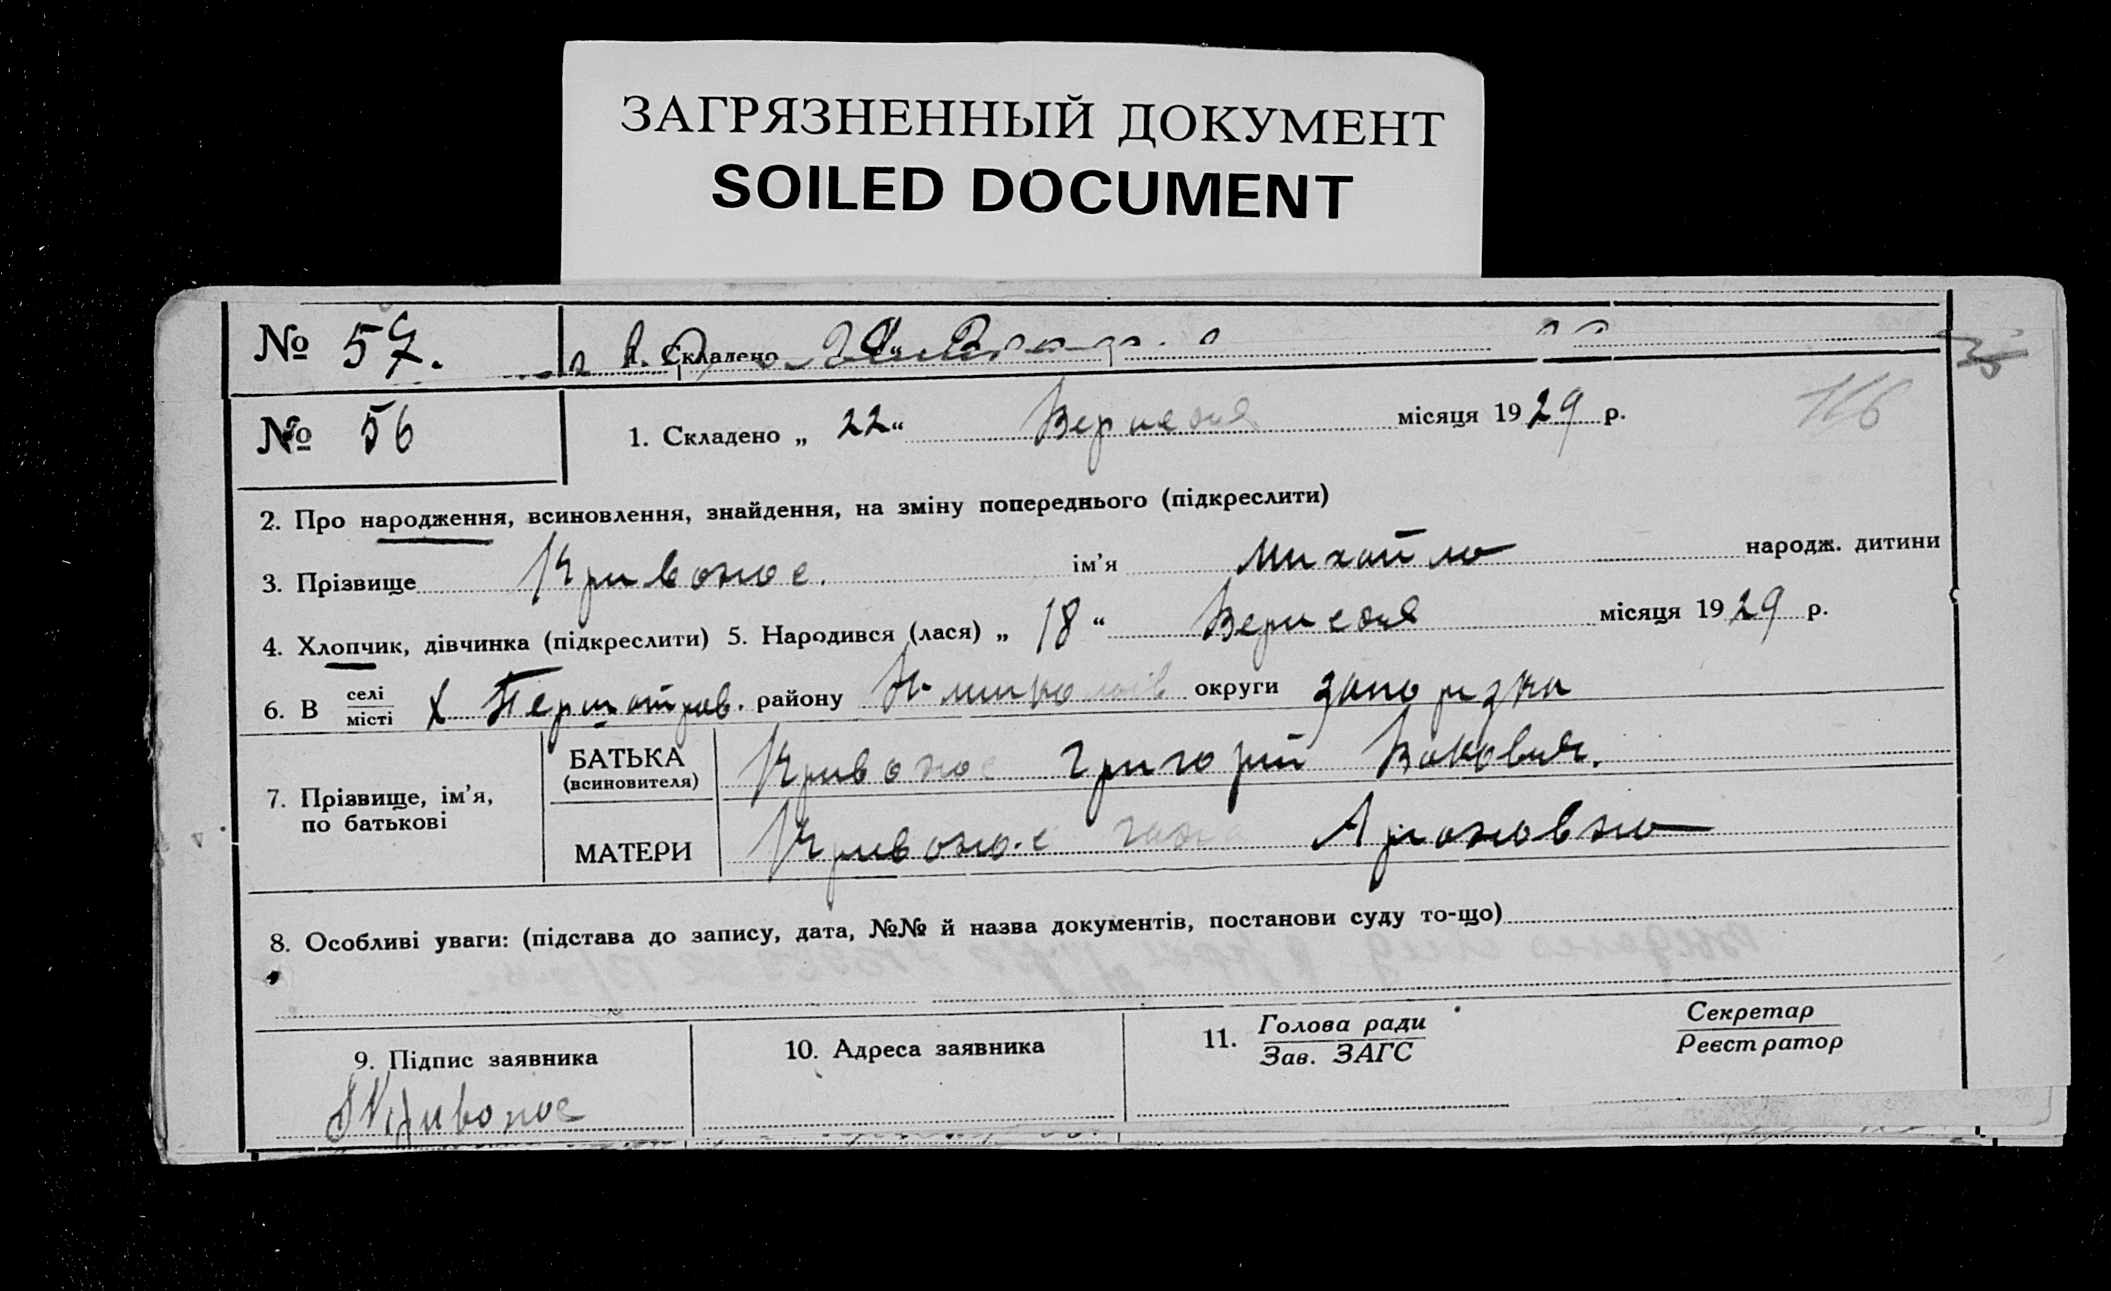 ЗАГРЯЗНЕННЫЙ ДОКУМЕНТ
SOILED DOCUMENT
№ 57. 1. Складено
№ 56 1. Складено „ 22 “ Вересня місяця 1929 р. 116
2. Про народження, всиновлення, знайдення, на зміну попереднього (підкреслити)
3. Прізвище Кривонос. ім’я Михайло народж. дитини
4. Хлопчик, дівчинка (підкреслити) 5. Народився (лася) „ 18 “ Вересня місяця 1929 р.
6. В селі / місті х Першотрав. району округи Запорізка
7. Прізвище, ім’я, по батькові
БАТЬКА (всиновителя) Кривонос Григорій
МАТЕРИ Кривонос Ароновна
8. Особливі уваги: (підстава до запису, дата, №№ й назва документів, постанови суду то-що)
9. Підпис заявника 10. Адреса заявника 11. Голова ради / Зав. ЗАГС Секретар / Реєстратор
Кривонос